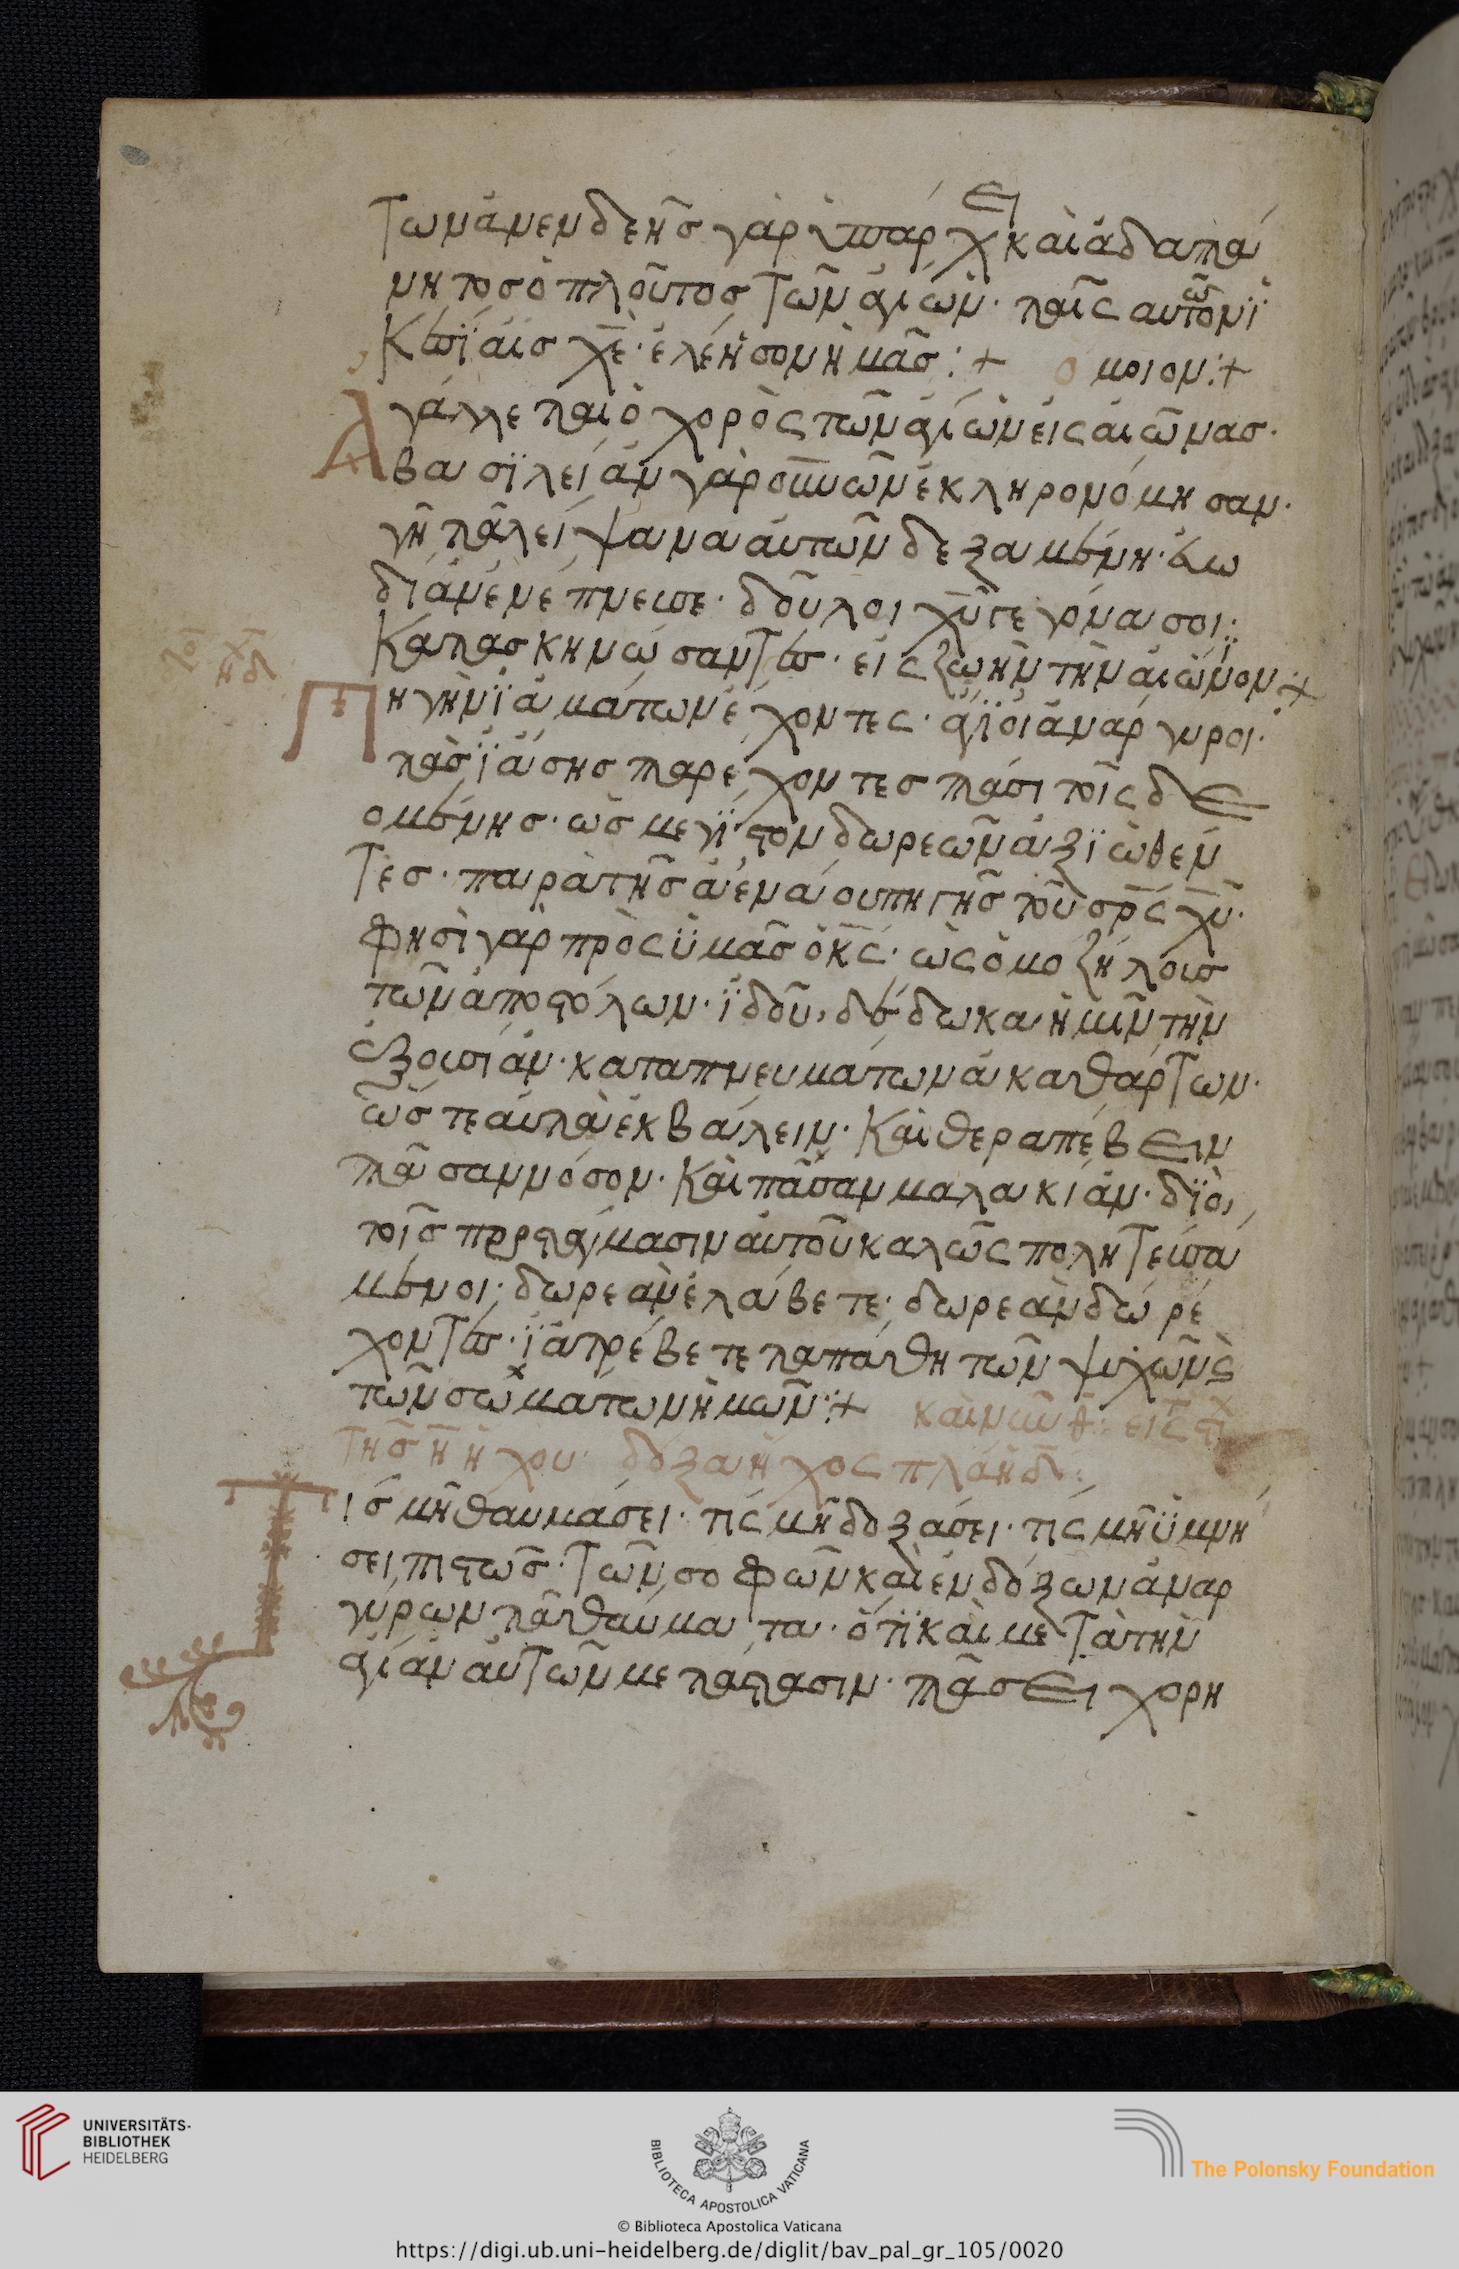 των ἀνενδεῆς γὰρ ὑπάρχει καὶ ἀδαπά
νητος ὁ πλοῦτος τῶν ἁγίων· ταῖς αυτῶν ϊ
κεσϊαις χε̅· ἐλέησον ἡμᾶς :+ ὅμοιον :+
Ἀγάλλεται ὁ χορὸς τῶν ἁγίων εἰς αἰῶνας·
βασϊλείαν γὰρ οὐνῶν ἐκληρονόμησαν·
γῆ τὰ λείψανα αὐτῶν δεξαμένη· εὐω
δίαν ἐνέπνευσε· δοῦλοι χῦ γεγόνασοι:
Κατασκηνώσαντες· εἰς ζωὴν τὴν αἰώνϊον :+
Πηγὴν ϊαμάτων ἔχοντες· ἅγϊοι ἀνάργυροι·
τὰς ϊάσης παρέχοντες πάσι τοῖς δε
ομένης· ὡς μεγΐστον δωρεῶν ἀξϊωθέν
τες· παρὰ τῆς ἀενάου πηγῆς τοῦ σρ̅ς χυ̅·
Φησὶ γὰρ πρὸς ϋμᾶς ὁ κς̅· ὡς ὁμοζήλοις
τῶν ἀποστόλων· ϊδοῦ, δέδωκα ἡμῖν τὴν
ἐξουσίαν· κατα πνευμάτων ἀκαθάρτων·
ὥστε αὐτὰ ἐκβάλειν· Καὶ θεραπέβειν
πᾶσαν νόσον· Καὶ πᾶσαν μαλακίαν· δϊὸ,
τοῖς προστάγμασιν αὐτοῦ καλῶς πολητευσα
μένοι· δωρεὰν ἐλάβετε· δωρεὰν δωρέ
χοντες· ϊατρέβετε τα πάθη τῶν ψυχῶν ϗ
τῶν σωμάτων ἡμῶν :+ καὶ νῦν θ: εἰς τ στιχ
τῆς η̅ ἤχου· δόξα ἦχος πλά ηδ:
Τίς μῆ θαυμάσει· τίς μῆ δοξάσει· τίς μῆ ϋμνή
σει πιστῶς· τῶν σοφῶν καὶ ἐνδόξων ἀναρ
γύρων τὰ θαύματα· ὅτϊ καὶ μετὰ τὴν
ἁγίαν αὐτῶν μετάστασιν· πᾶσει χορη
UNIVERSITÄTS-
BIBLIOTHEK
HEIDELBERG
BIBLIOTECA APOSTOLICA VATICANA
The Polonsky Foundation
© Biblioteca Apostolica Vaticana
https://digi.ub.uni-heidelberg.de/diglit/bav_pal_gr_105/0020